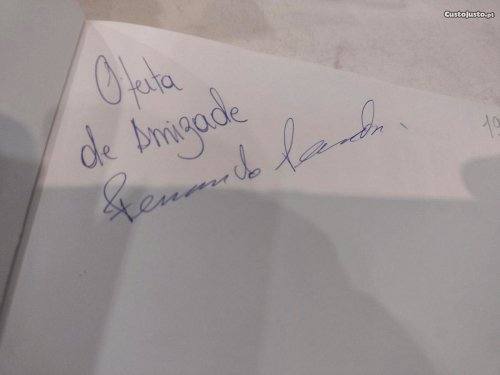 CustoJusto.pt
Oferta
de Amizade
Fernando
19